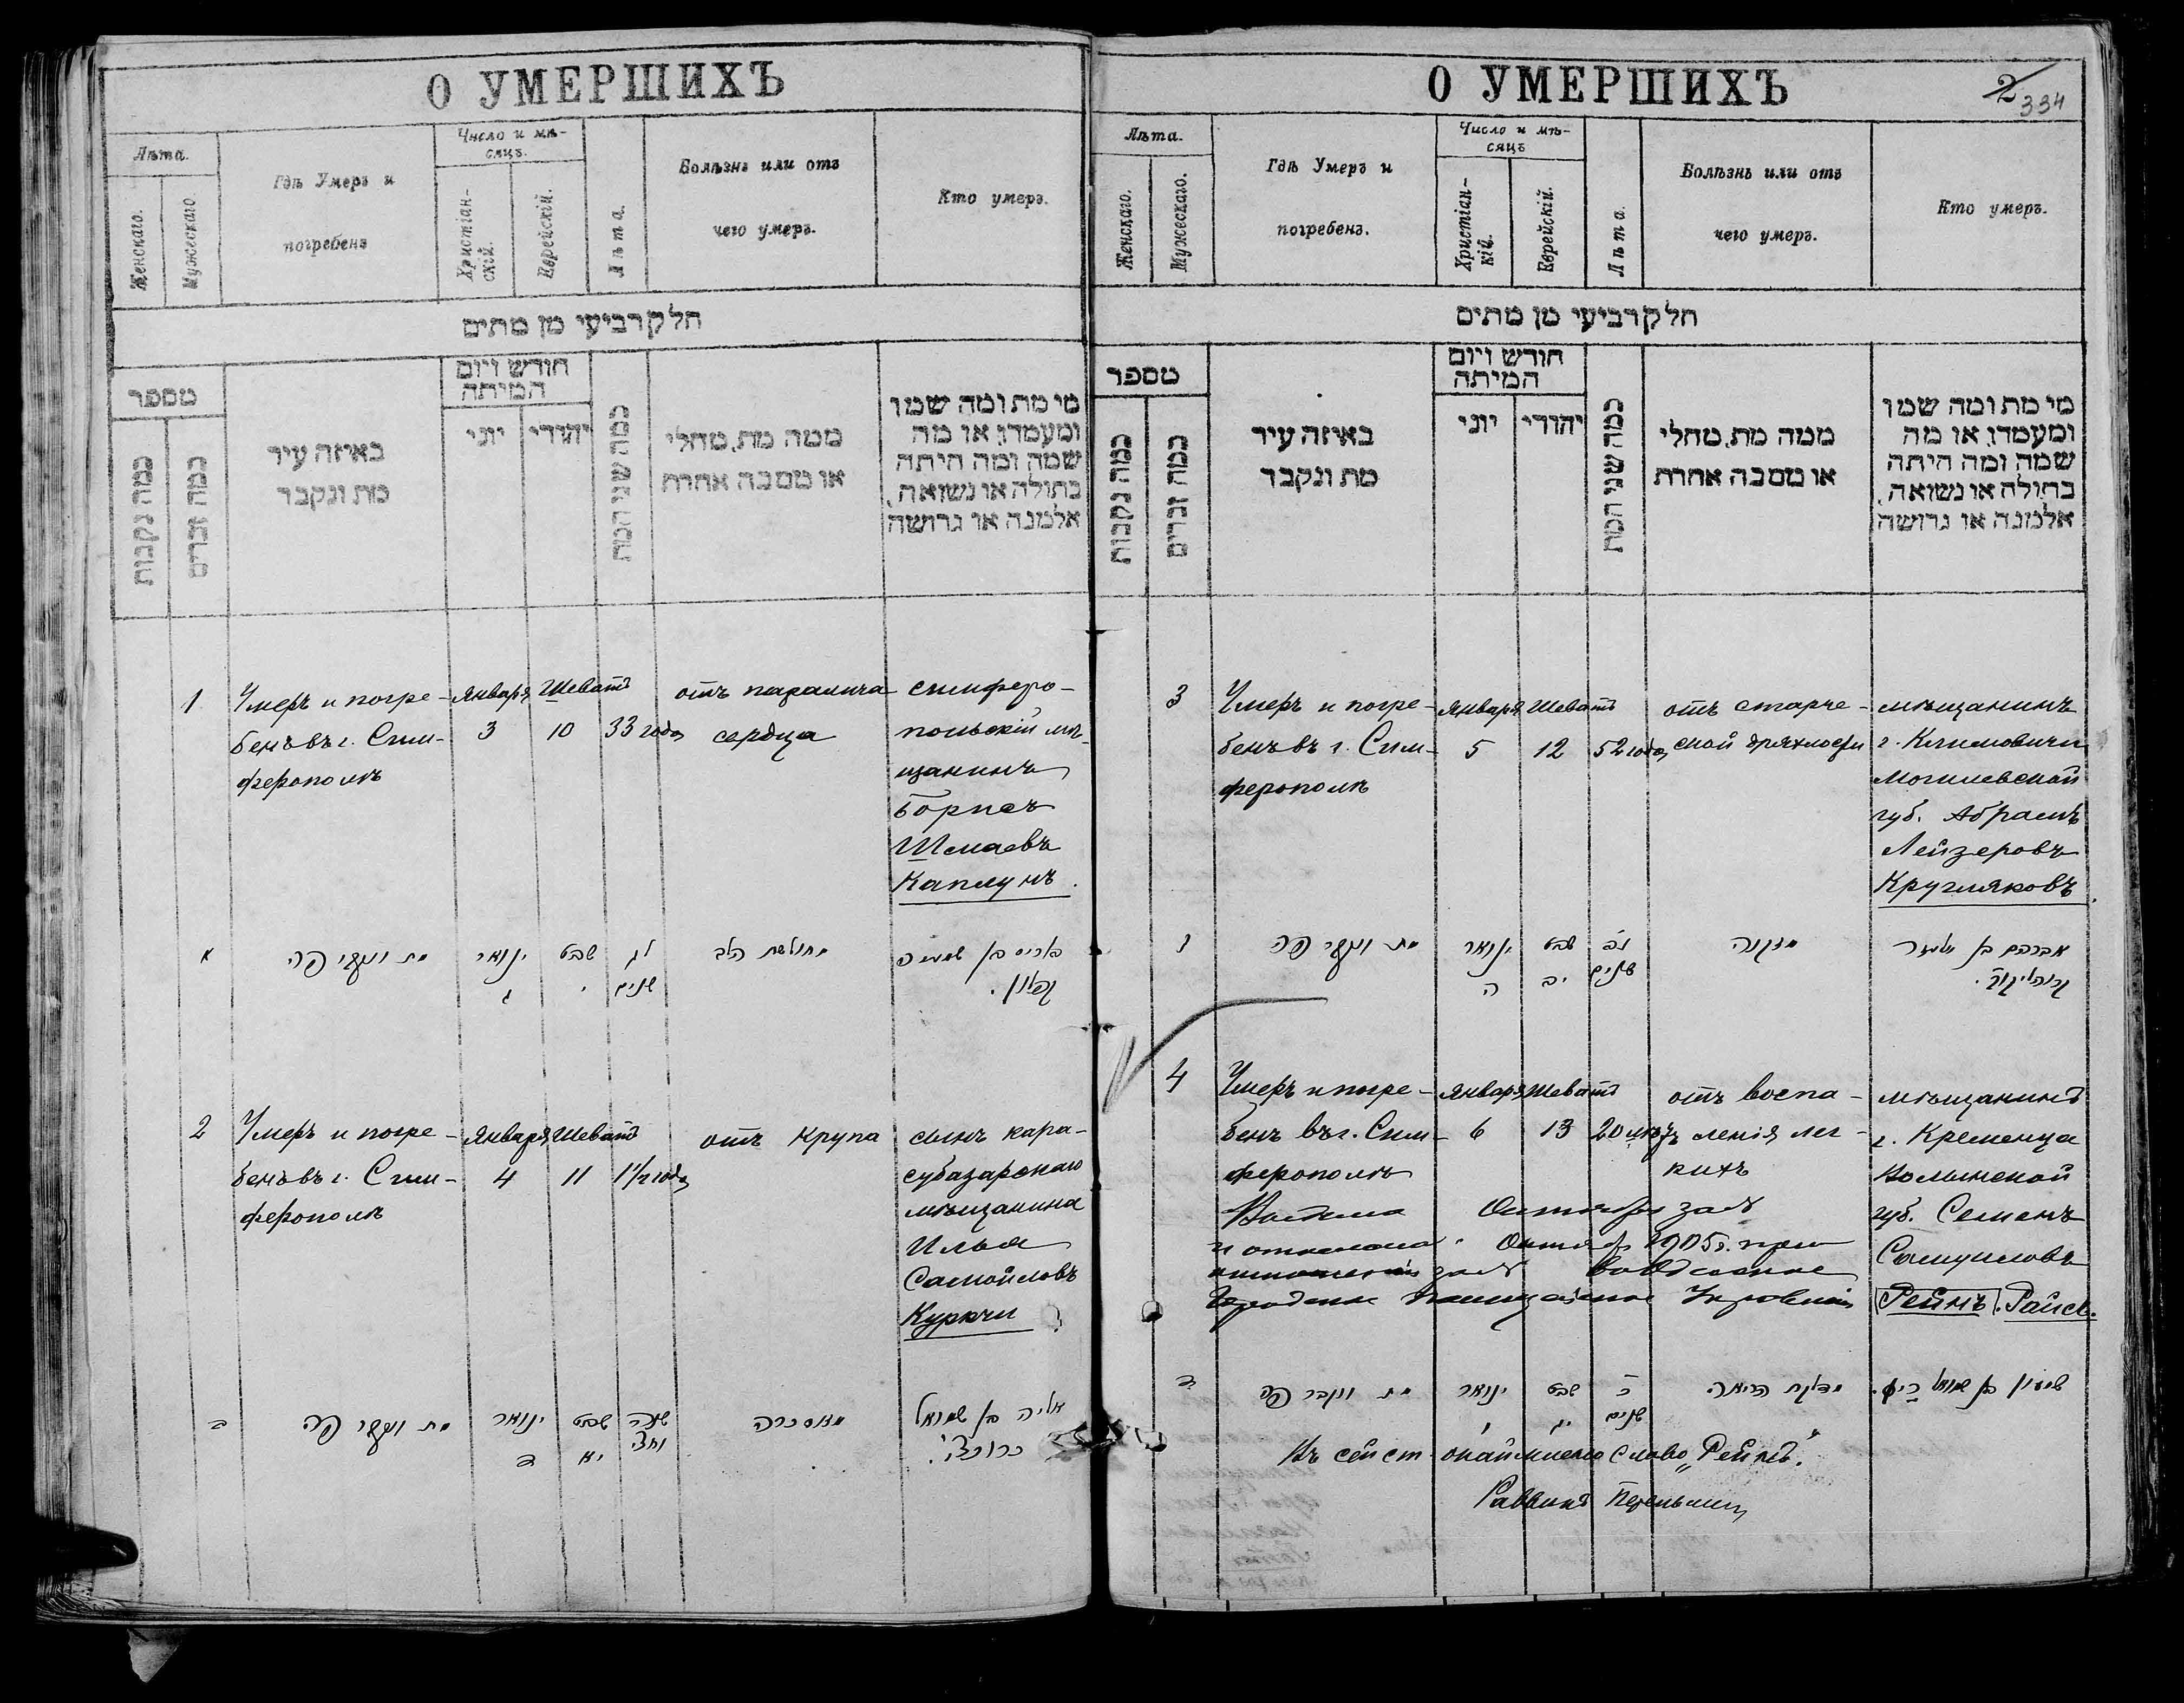 О УМЕРШИХЪ
Лѣта.
Женскаго.
Мужескаго.
Гдѣ Умеръ и
погребенъ
Число и мѣ-
сяцъ.
Христіан-
скій.
Еврейскій.
Лѣта.
Болѣзнь или отъ
чего умеръ.
Кто умеръ.
חלק רביעי מן מתים
מספר
כמה נקבות
כמה זכרים
באיזה עיר
מת ונקבר
חודש ויום
המיתה
יוני
יהודי
כמה שני המת
ממה מת, מחלי
או מסבה אחרת
מי מת ומה שמו
ומעמדו, או מה
שמה ומה היתה
בתולה או נשואה,
אלמנה או גרושה
1
Умеръ и погре-
бенъ въ г. Сим-
ферополѣ
Января
3
Шеватъ
10
33 года
отъ паралича
сердца
симферо-
польскій мѣ-
щанинъ
Борисъ
Шмаевъ
Каплунъ.
א
מת ונקבר פה
ינואר
ג
שבט
י
לג
שנים
מחולשת הלב
באריס בן שמעיה
קפלון.
2
Умеръ и погре-
бенъ въ г. Сим-
ферополѣ
Января
4
Шеватъ
11
1 1/2 года
отъ крупа
сынъ кара-
субазарскаго
мѣщанина
Илья
Самойловъ
Куркчи
ב
מת ונקבר פה
ינואר
ד
שבט
יא
שנה
וחצי
מאסכרה
אליה בן שמואל
О УМЕРШИХЪ
2
334
Лѣта.
Женскаго.
Мужескаго.
Гдѣ Умеръ и
погребенъ.
Число и мѣ-
сяцъ
Христіан-
кій.
Еврейскій.
Лѣта.
Болѣзнь или отъ
чего умеръ.
Кто умеръ.
חלק רביעי מן מתים
מספר
כמה נקבות
כמה זכרים
באיזה עיר
מת ונקבר
חודש ויום
המיתה
יוני
יהודי
כמה שני המת
ממה מת, מחלי
או מסבה אחרת
מי מת ומה שמו
ומעמדו, או מה
שמה ומה היתה
בתולה או נשואה,
אלמנה או גרושה
3
Умеръ и погре-
бенъ въ г. Сим-
ферополѣ
Января
5
Шеватъ
12
52 года
отъ старче-
ской дряхлости
мѣщанинъ
г. Климовичи
Могилевской
губ. Абрамъ
Лейзеровъ
Кругляковъ.
ג
מת ונקבר פה
ינואר
ה
שבט
יב
נב
שנים
מזקנה
אברהם בן אליעזר
4
Умеръ и погре-
бенъ въ г. Сим-
ферополѣ
Января
6
Шеватъ
13
20 лѣтъ
отъ воспа-
ленія лег-
кихъ
мѣщанинъ
г. Кременца
Волынской
губ. Семенъ
Самуиловъ
Рейнъ. Райсъ.
1905 г. при
ד
מת ונקבר פה
ינואר
ו
שבט
יג
כ
שנים
מדלקת הריאה
שמעון בן שמואל
Въ сей ст. окаймлено слово „Рейнъ“.
Раввинъ